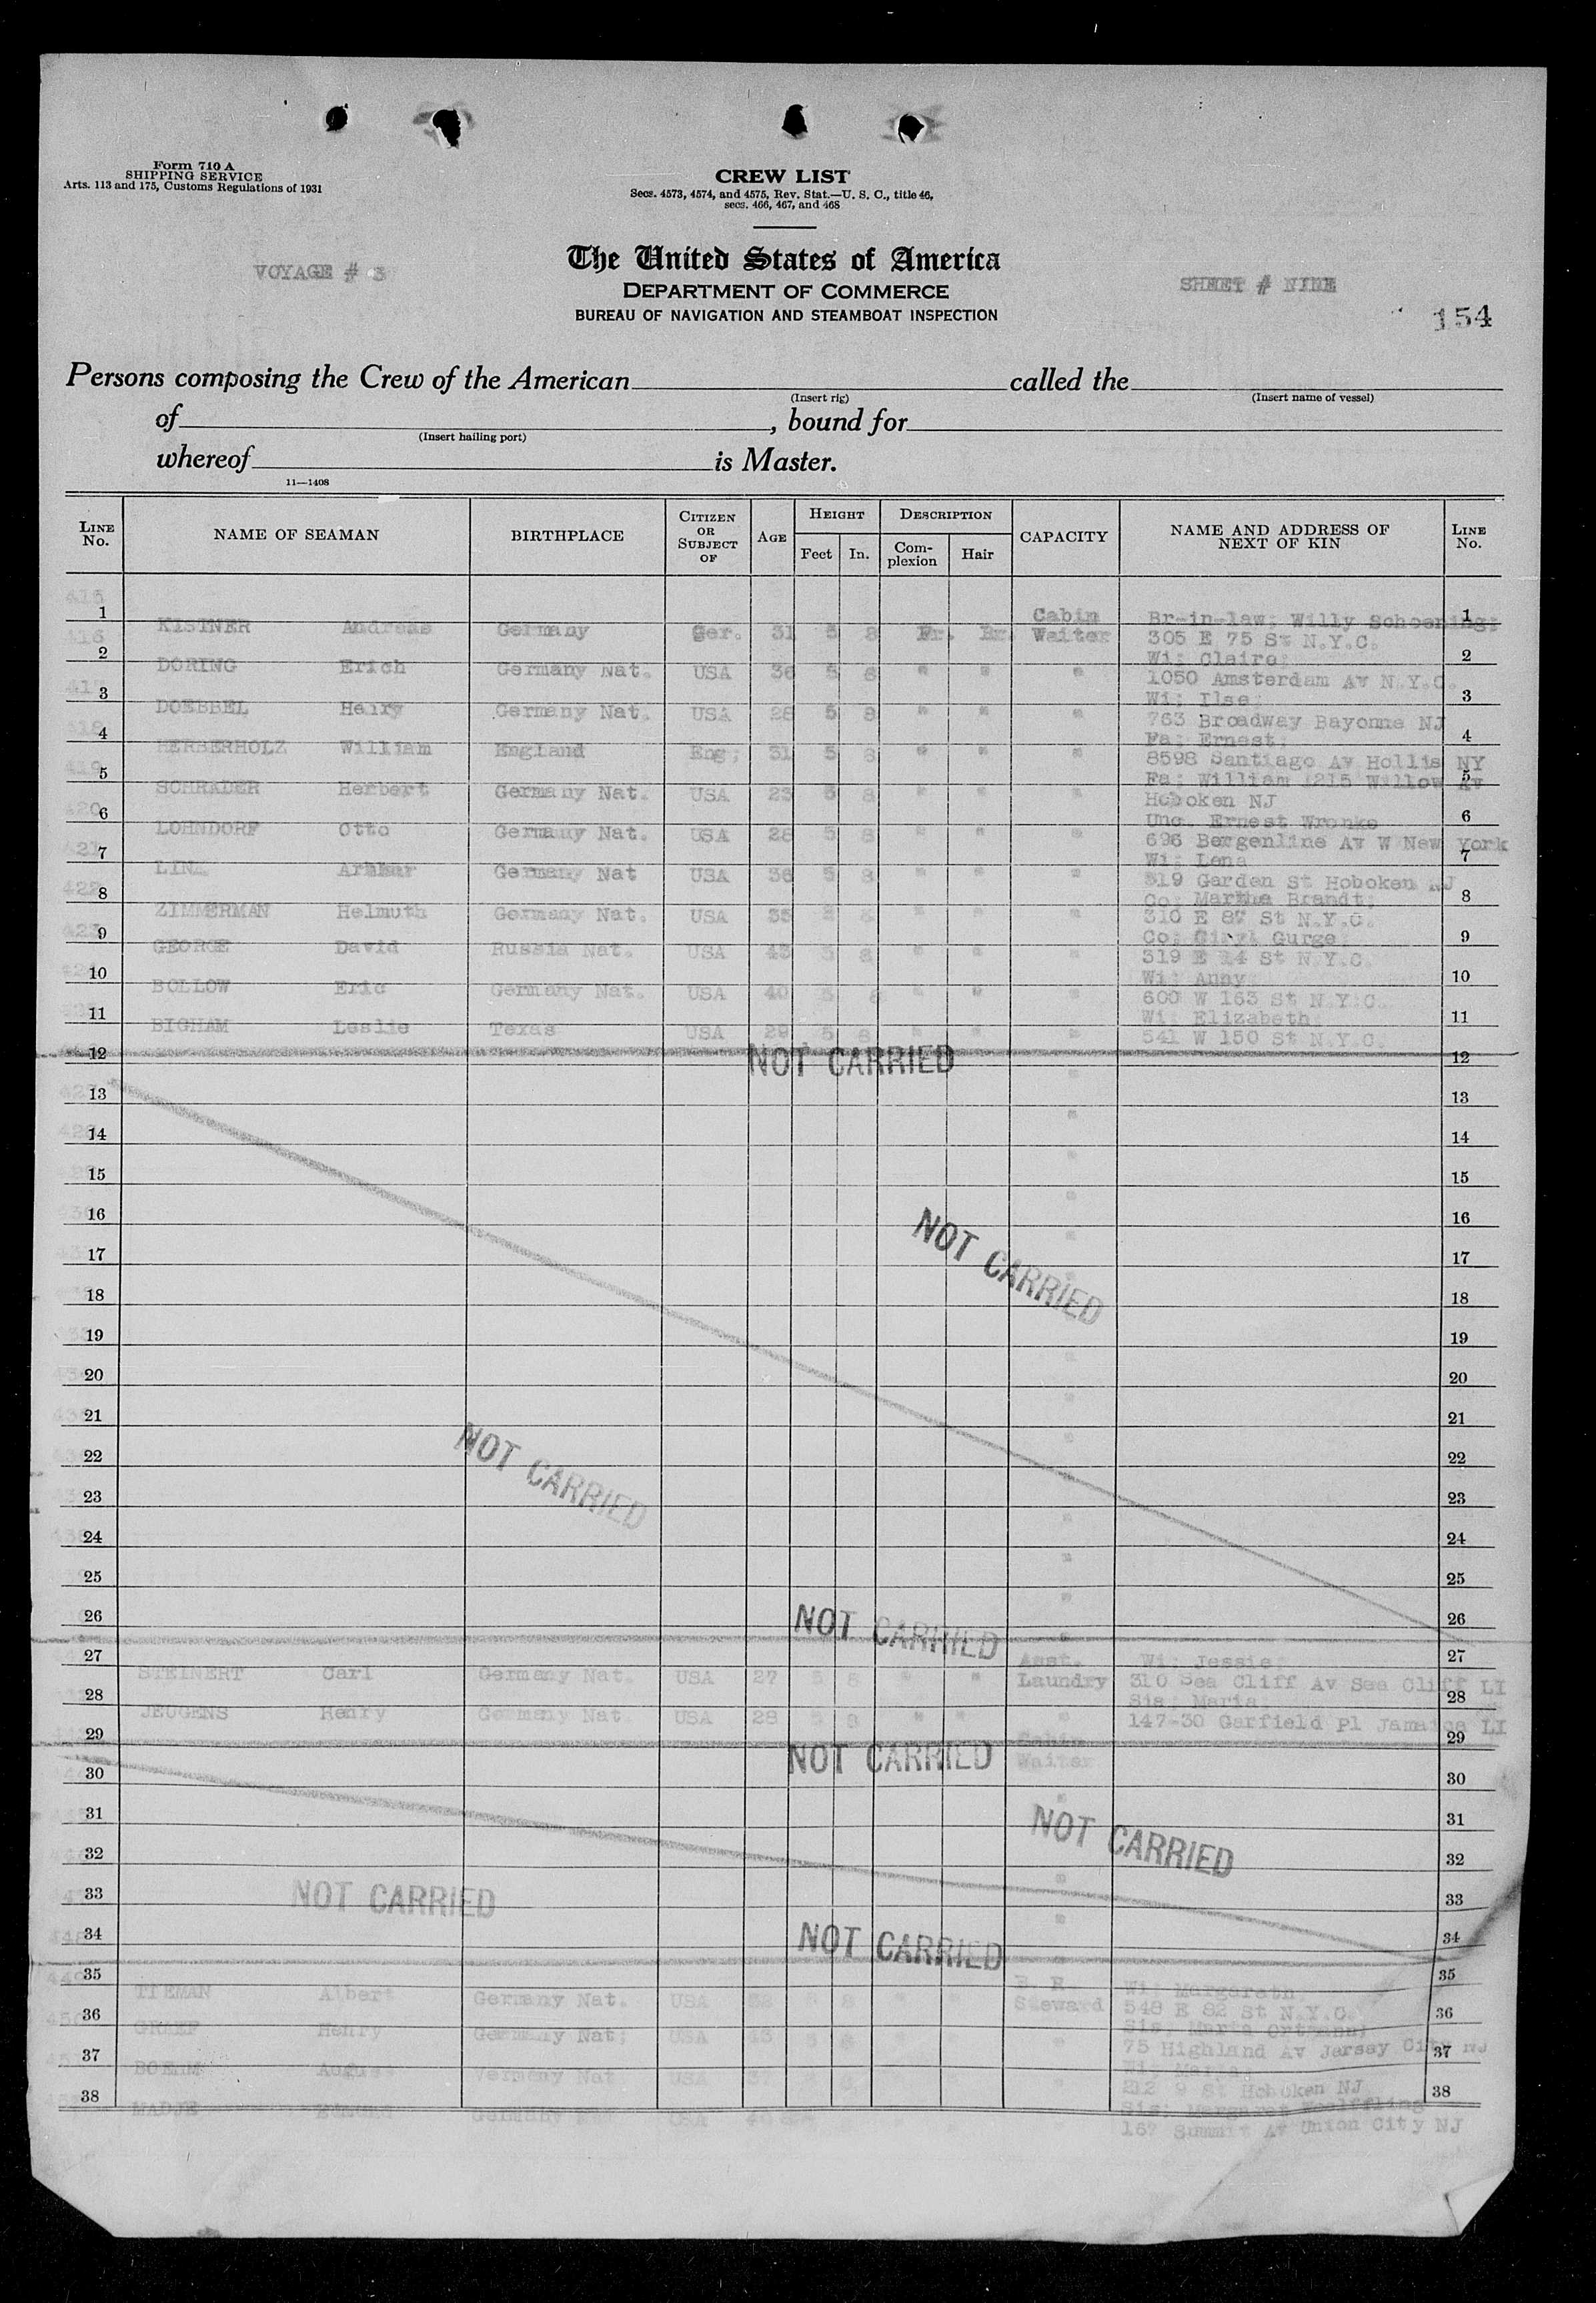 Form 710 A
SHIPPING SERVICE
Arts. 113 and 175, Customs Regulations of 1931
CREW LIST
Secs. 4573, 4574, and 4575, Rev. Stat.—U. S. C., title 46,
secs. 466, 467, and 468
The United States of America
DEPARTMENT OF COMMERCE
BUREAU OF NAVIGATION AND STEAMBOAT INSPECTION
VOYAGE # 3
SHEET # NINE
154
Persons composing the Crew of the American called the
(Insert rig) (Insert name of vessel)
of , bound for
(Insert hailing port)
whereof is Master.
11—1408
LINE No. NAME OF SEAMAN BIRTHPLACE CITIZEN OR SUBJECT OF AGE HEIGHT Feet In. DESCRIPTION Complexion Hair CAPACITY NAME AND ADDRESS OF NEXT OF KIN LINE No.
415
1 Cabin Br-in-law; Willy Schoening; 1
416 KISTNER Andreas Germany Ger. 31 5 8 Fr. Br. Waiter 305 E 75 St N.Y.C.
2 Wi; Claire; 2
417 DORING Erich Germany Nat. USA 36 5 8 " " " 1050 Amsterdam Av N.Y.C.
3 Wi; Ilse; 3
418 DOEBBEL Henry Germany Nat. USA 28 5 8 " " " 763 Broadway Bayonne NJ
4 Fa; Ernest; 4
419 HERBERHOLZ William England Eng; 31 5 8 " " " 8598 Santiago Av Hollis NY
5 Fa; William 1215 Willow Av 5
420 SCHRADER Herbert Germany Nat. USA 23 5 8 " " " Hoboken NJ
6 Unc. Ernest Wronke 6
421 LOHNDORF Otto Germany Nat. USA 28 5 8 " " " 696 Bergenline Av W New York
7 Wi; Lena 7
422 Germany Nat USA 36 5 8 " " " 819 Garden St Hoboken NJ
8 Co; Martha Brandt; 8
423 ZIMMERMAN Helmuth Germany Nat. USA 35 8 " " " 310 E 87 St N.Y.C.
9 Co; Gurge 9
424 GEORGE David Russia Nat. USA 43 5 8 " " " 319 E 14 St N.Y.C.
10 Wi; Anny 10
BOLLOW Eric Germany Nat. USA 40 5 8 " " " 600 W 163 St N.Y.C.
11 Wi; Elizabeth; 11
BIGHAM Leslie Texas USA 29 5 8 " " " 541 W 150 St N.Y.C.
12 NOT CARRIED 12
13 " 13
14 " 14
15 " 15
16 " 16
NOT CARRIED
17 " 17
18 18
19 " 19
20 " 20
21 " 21
22 22
NOT CARRIED
23 " 23
24 " 24
25 " 25
26 NOT CARRIED " 26
27 Asst. Wi; Jessie; 27
STEINERT Carl Germany Nat. USA 27 5 8 " " Laundry 310 Sea Cliff Av Sea Cliff LI
28 Sis; Maria; 28
JEUGENS Henry Germany Nat. USA 28 5 8 " " " 147-30 Garfield Pl Jamaica LI
29 Cabin 29
NOT CARRIED Waiter
30 " 30
31 NOT CARRIED 31
32 " 32
33 NOT CARRIED " 33
34 NOT CARRIED " 34
35 B. R. Wi; Margareth 35
TIEMAN Albert Germany Nat. USA 8 " " Steward 548 E 82 St N.Y.C.
36 Sis; Maria Ortmann; 36
GRAEF Henry Germany Nat; USA 43 5 8 " 75 Highland Av Jersey City NJ
37 Wi; Maria; 37
BOEHM August Germany Nat USA 37 " 212 9 St Hoboken NJ
38 Sis; Margaret 38
MADJE Edmund Germany USA 40 167 Summit Av Union City NJ